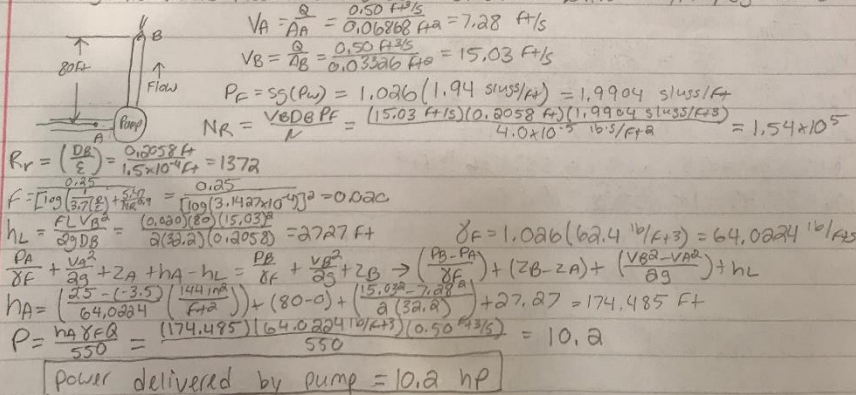 VA = Q/AA = 0.50 ft3/s / 0.06868 ft2 = 7.28 ft/s
VB = Q/AB = 0.50 ft3/s / 0.03326 ft2 = 15.03 ft/s
B
80ft
Flow
A
Pump
PF = sg(Pw) = 1.026(1.94 slugs/ft) = 1.9904 slugs/ft
NR = VBDBPF/N = (15.03 ft/s)(0.2058 ft)(1.9904 slugs/ft3) / 4.0x10^-5 lb·s/ft2 = 1.54x10^5
Rr = (DB/ε) = 0.2058ft / 1.5x10^-4ft = 1372
= 0.25 / [log(3.1427x10^-4)]2 = 0.020
hL = FLVB2 / 2gDB = (0.020)(80)(15.03)2 / 2(32.2)(0.2058) = 2727 ft
γF = 1.026(62.4 lb/ft3) = 64.0224 lb/ft3
PA/γF + VA2/2g + ZA + hA - hL = PB/γF + VB2/2g + ZB → (PB-PA/γF) + (ZB-ZA) + (VB2-VA2/2g) + hL
hA = (25-(-3.5)/64.0224 (144in2/ft2)) + (80-0) + (15.032-7.282/2(32.2)) + 27.27 = 174.485 ft
P = hAγFQ/550 = (174.485)(64.0224 lb/ft3)(0.50 ft3/s) / 550 = 10.2
Power delivered by pump = 10.2 hp